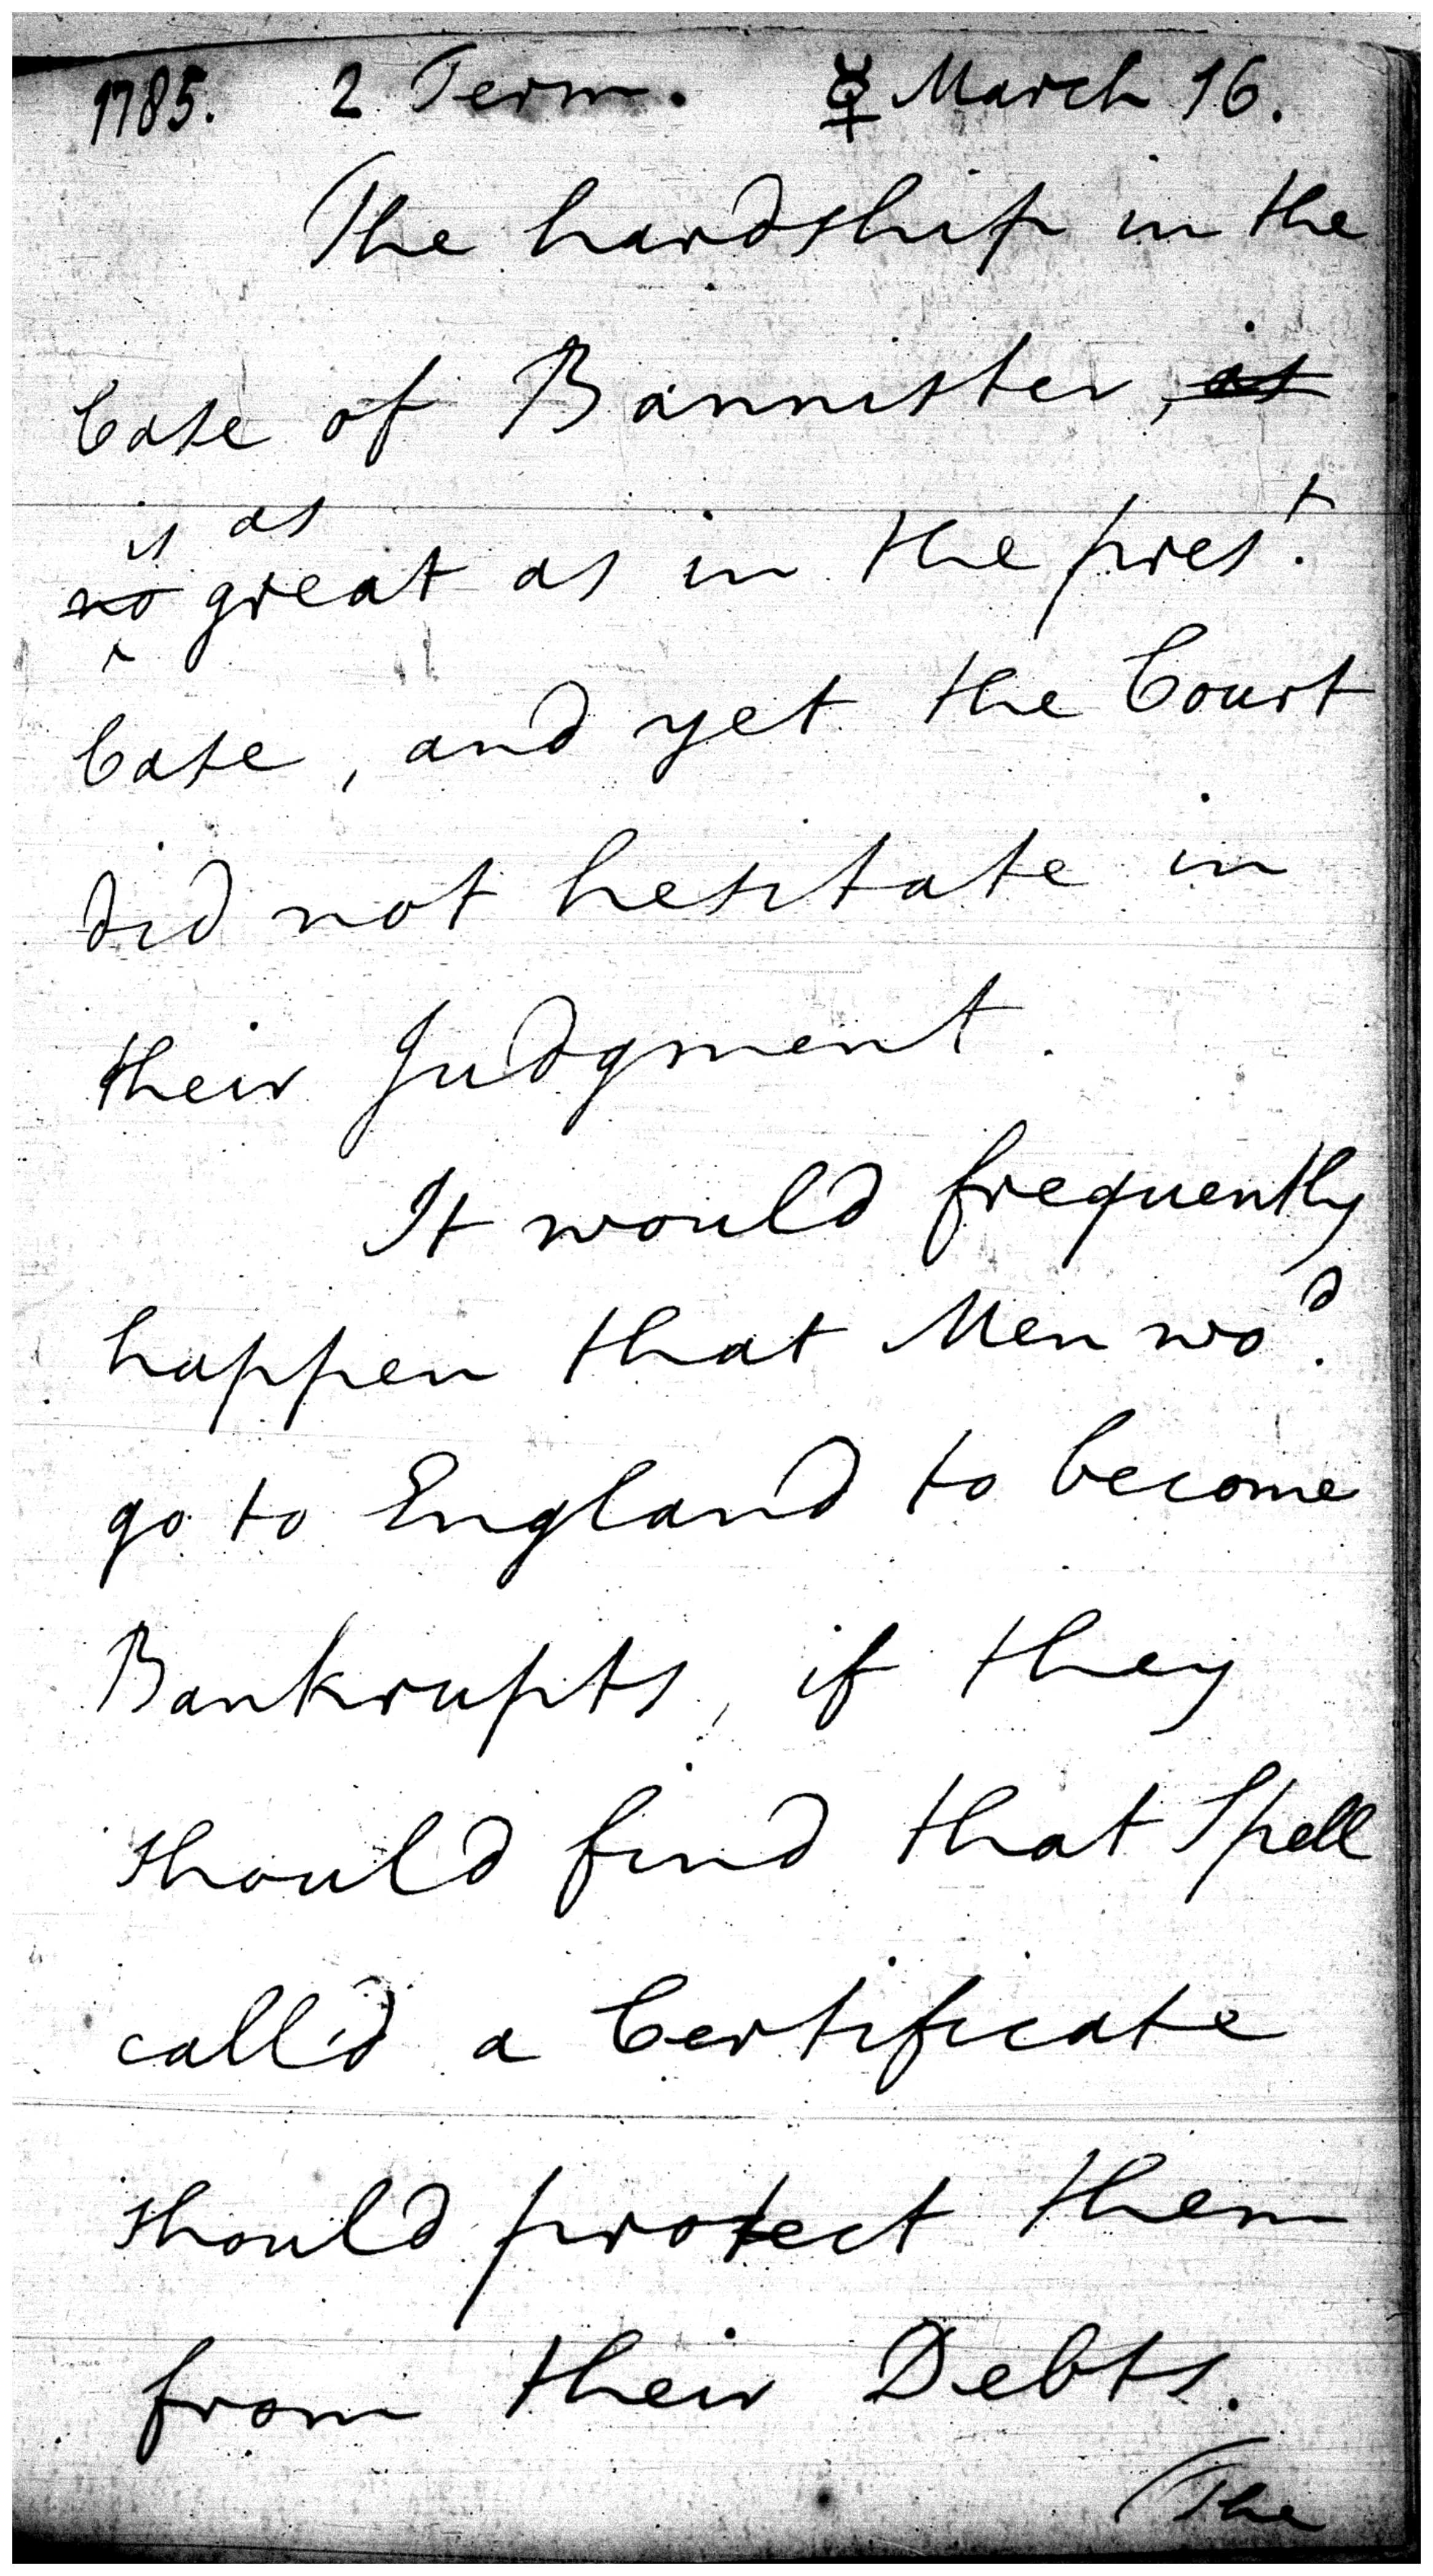 1785. 2 Term. ☿ March 16.
The hardship in the
Case of Bannister, as
is as
no great as in the pres.t
Case, and yet the Court
did not hesitate in
their Judgment.
It would frequently
happen that Men wo.d
go to England to become
Bankrupts, if they
should find that Spell
call'd a Certificate
should protect them
from their Debts.
The